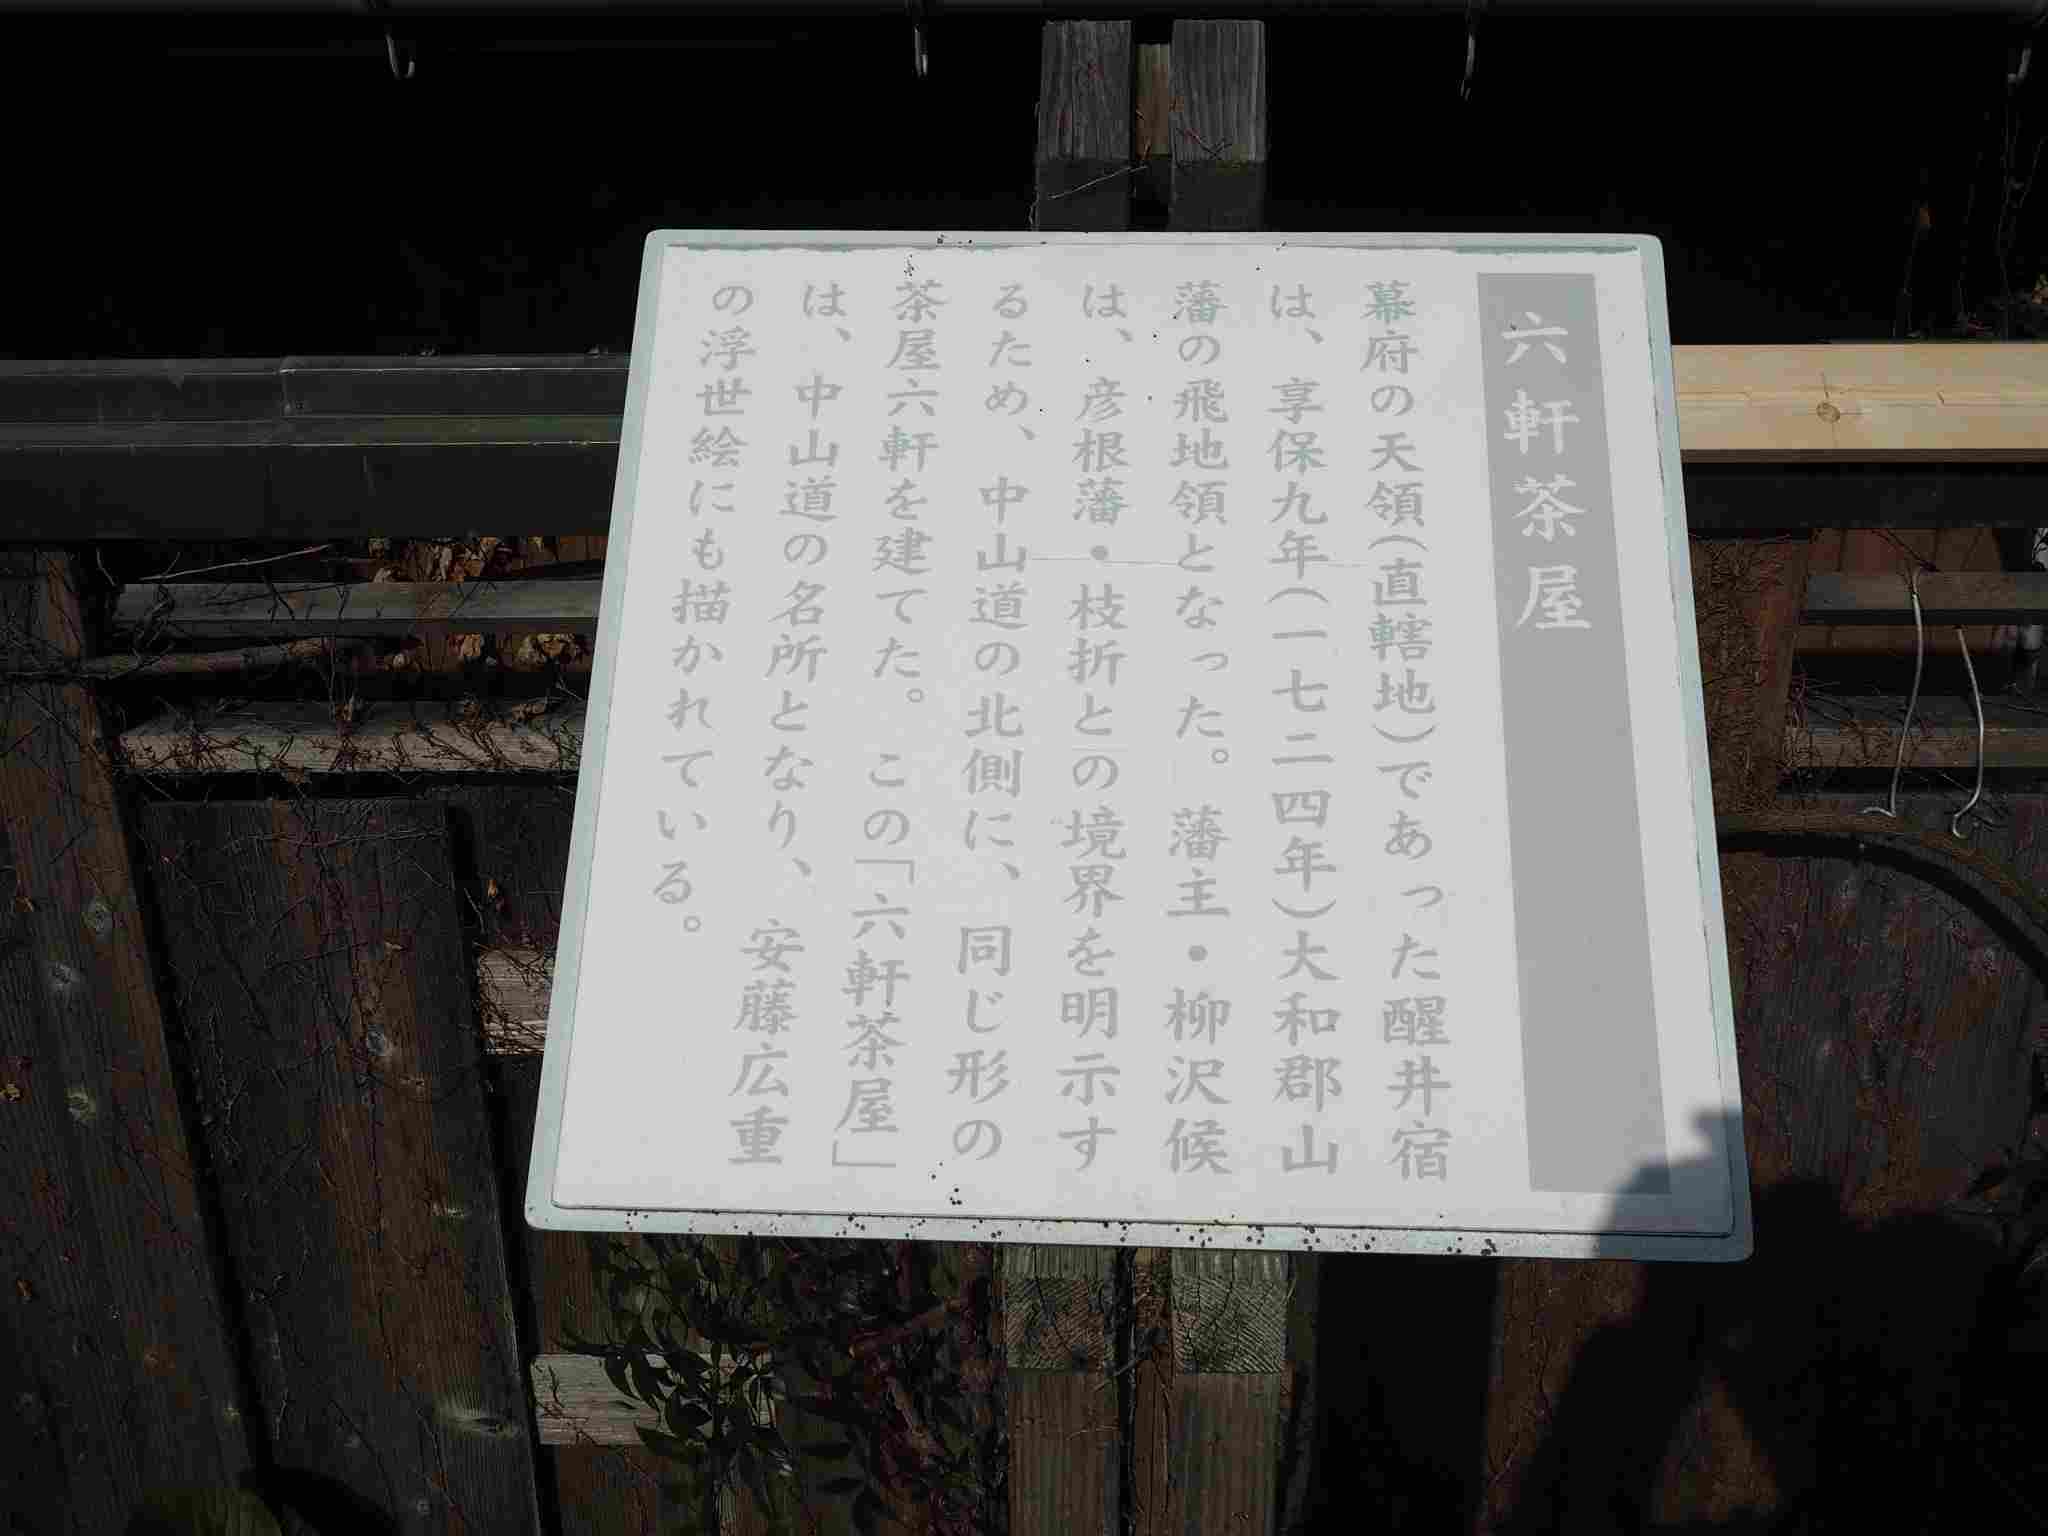 六軒茶屋
幕府の天領(直轄地)であった醒井宿
は、享保九年(一七二四年)大和郡山
藩の飛地領となった。藩主・柳沢候
は、彦根藩・枝折との境界を明示す
るため、中山道の北側に、同じ形の
茶屋六軒を建てた。この「六軒茶屋」
は、中山道の名所となり、安藤広重
の浮世絵にも描かれている。